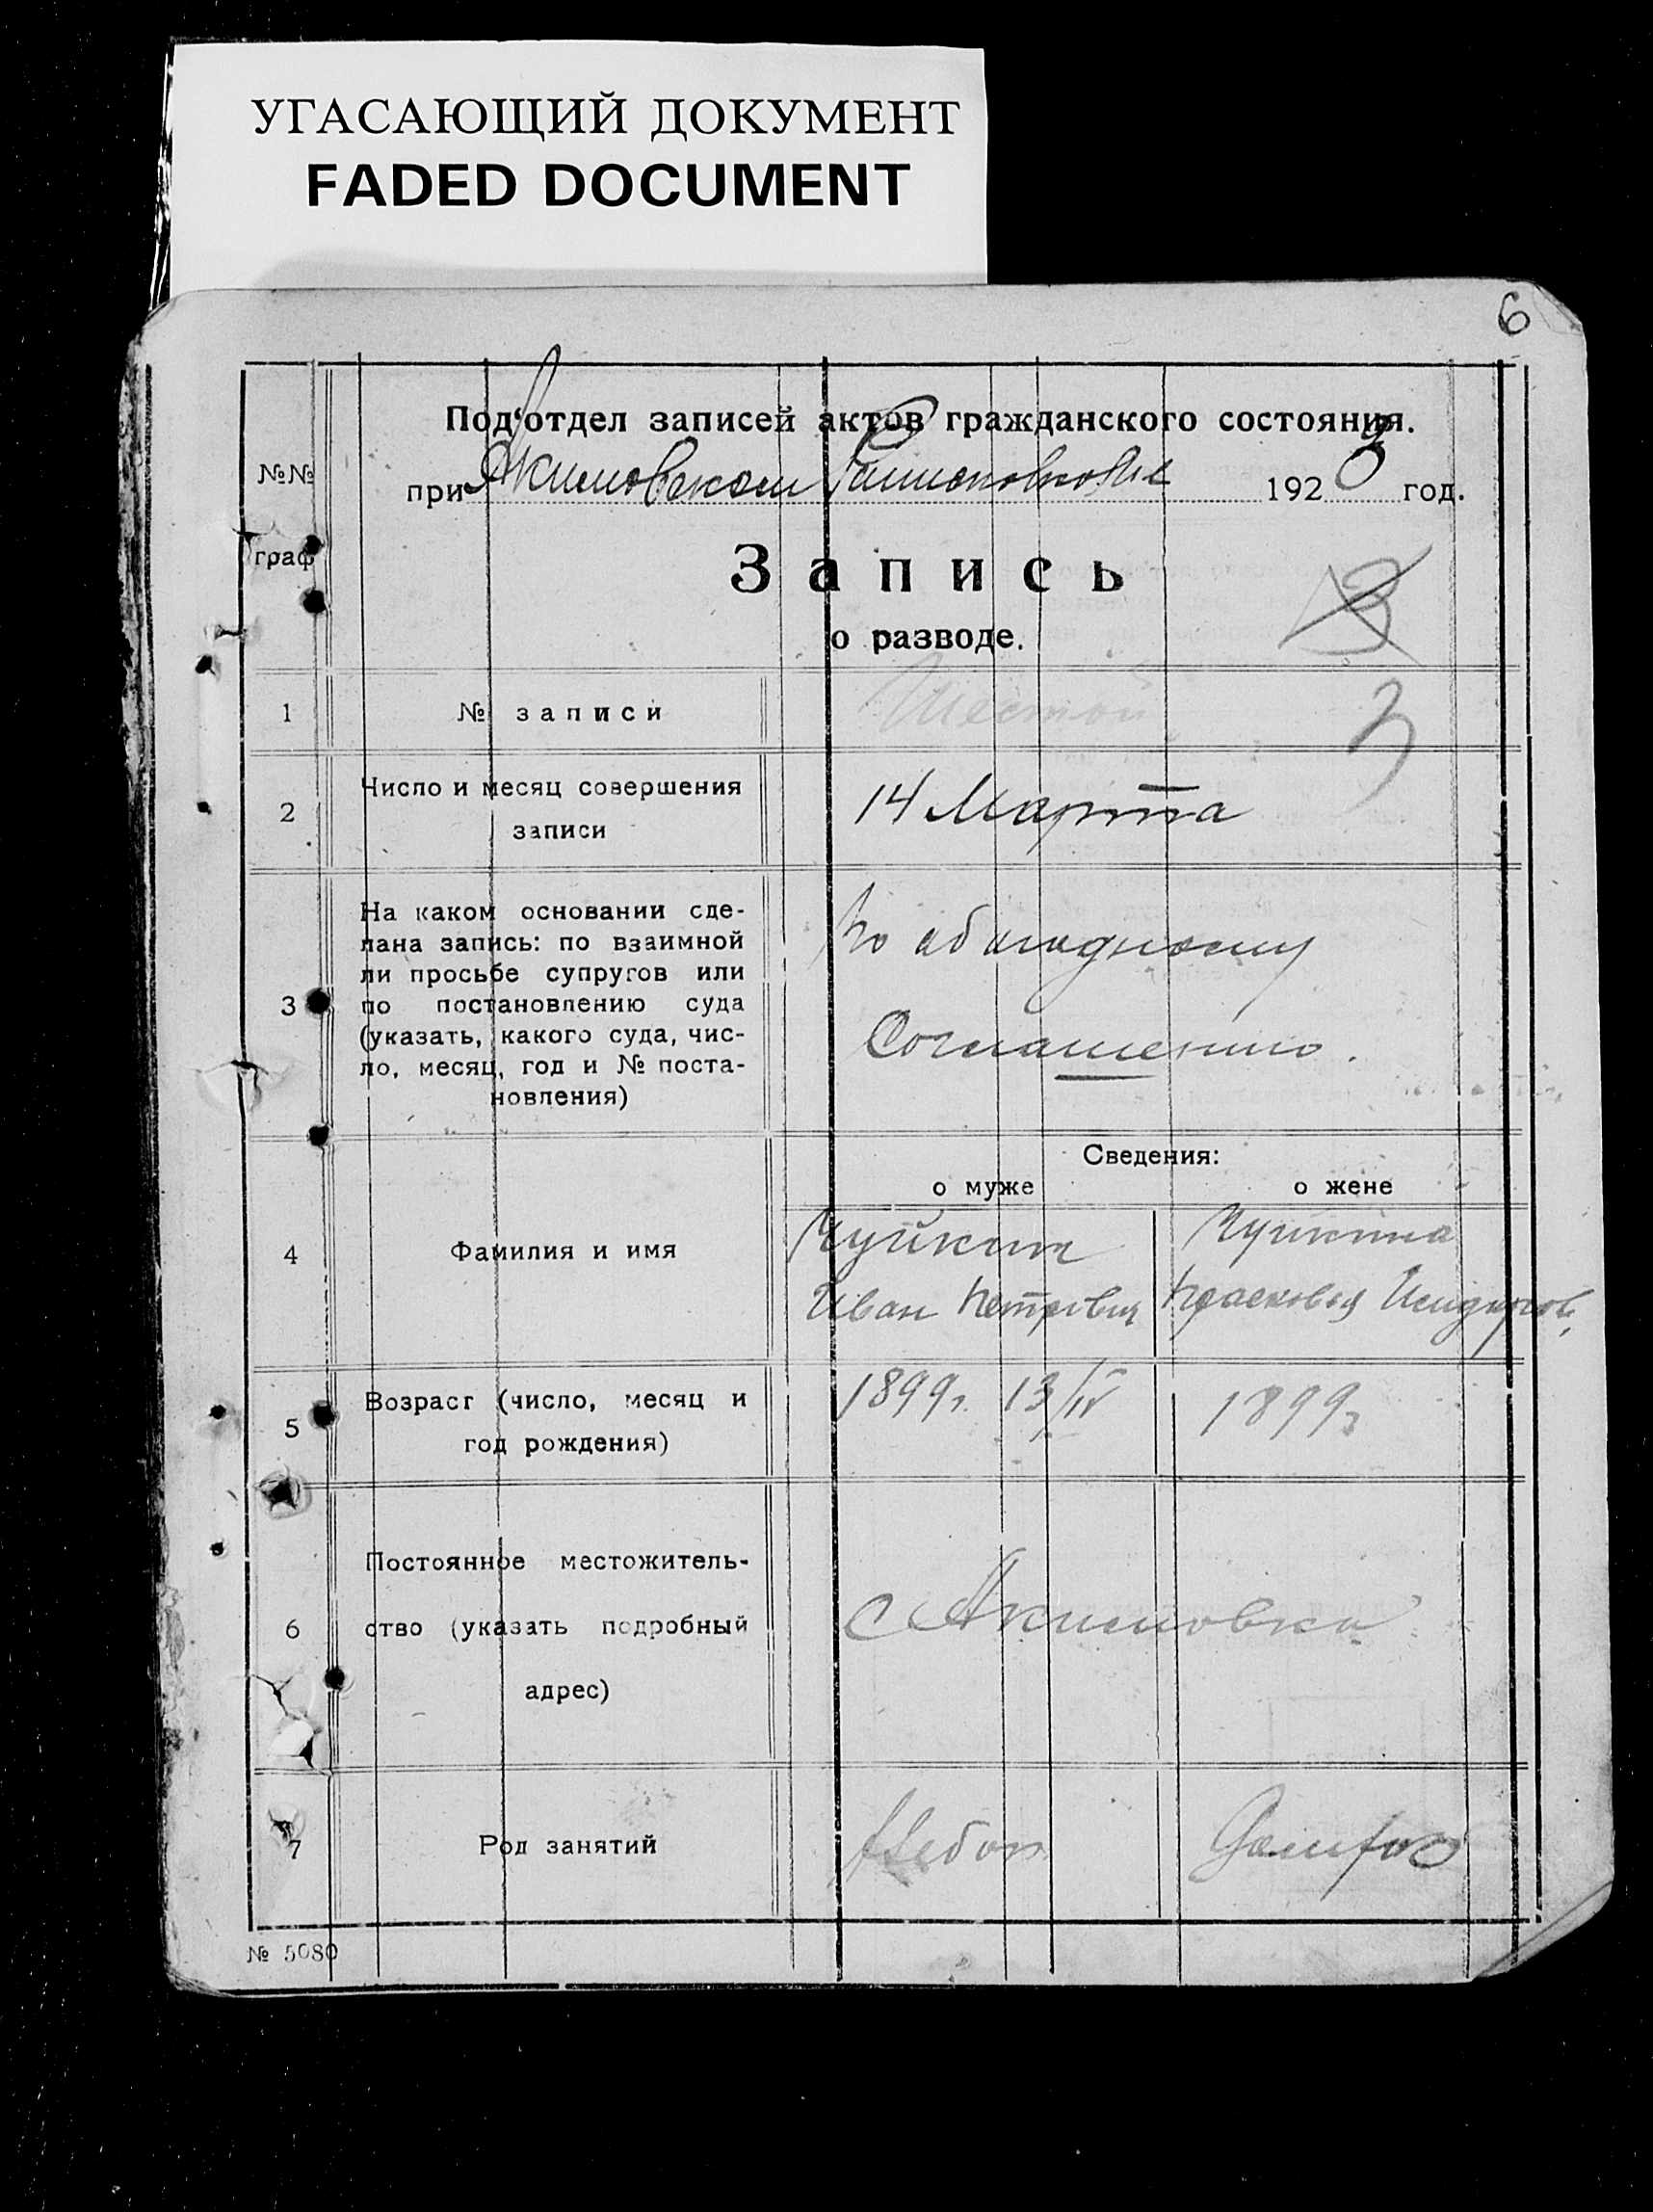 УГАСАЮЩИЙ ДОКУМЕНТ
FADED DOCUMENT
6
Под'отдел записей актов гражданского состояния.
№№ граф
при Акимовском 1923 год.
Запись
о разводе.
3
1 № записи Шестой
2 Число и месяц совершения
записи
14 Марта
3 На каком основании сде-
лана запись: по взаимной
ли просьбе супругов или
по постановлению суда
(указать, какого суда, чис-
ло, месяц, год и № поста-
новления)
По
Соглашению.
Сведения:
о муже о жене
4 Фамилия и имя
Иван Петрович
Прасковья
5 Возраст (число, месяц и
год рождения)
1899г. 13/IV
1899г
6 Постоянное местожитель-
ство (указать подробный
адрес)
с Акимовка
7 Род занятий
№ 5080